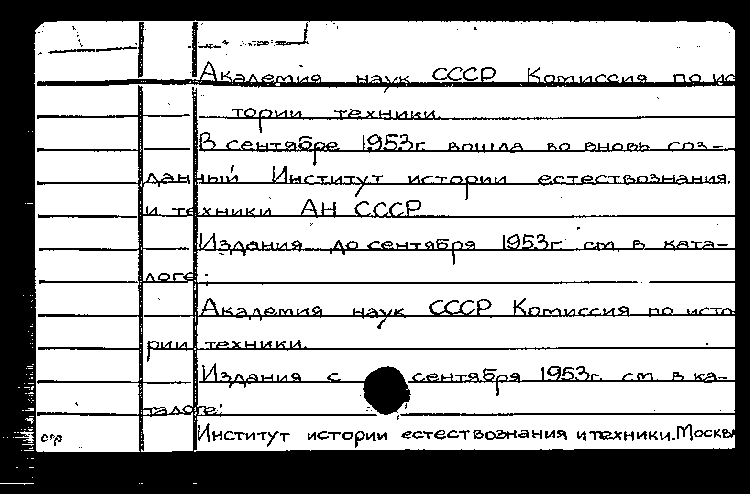 Академия наук СССР Комиссия по ис
тории техники.
В сентябре 1953г. вошла во вновь соз-
данный Институт истории естествознания
и техники АН СССР
Издания до сентября 1953г. см. в ката-
логе:
Академия наук СССР. Комиссия по исто
рии техники.
Издания с сентября 1953г. см. в ка-
талоге:
Институт истории естествознания и техники. Москва